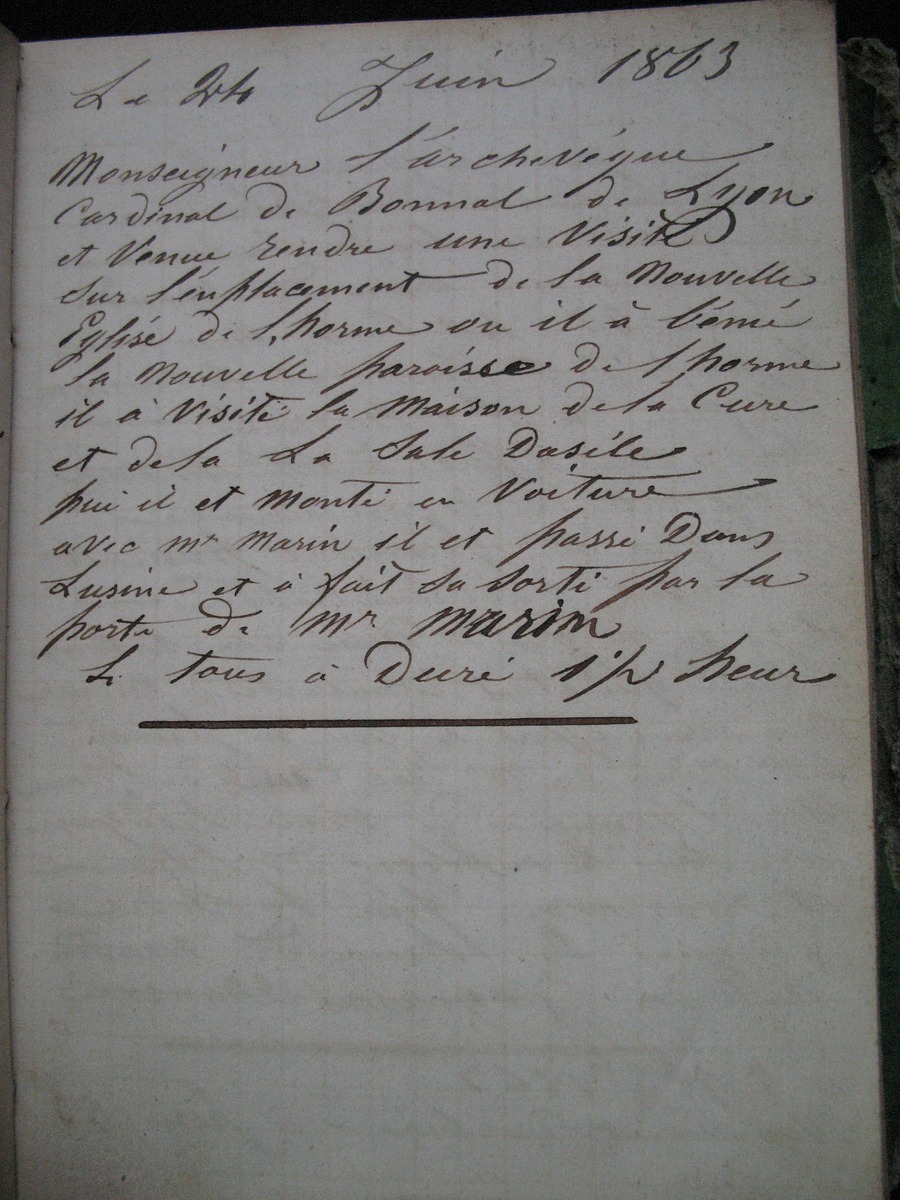 Le 24 Juin 1863
Monseigneur l'archevéque
Cardinal de Bonnal de Lyon
et Venue rendre une Visite
sur l'enplacement de la Nouvelle
Eglise de l,horme ou il à bénié
la Nouvelle paroisse de l horme
il à Visité la Maison de la Cure
et de la La Sale Dasile
pui il et Monté en Voiture
avec mr Marin il et passé Dans
Lusine et à fait sa sorti par la
porte de Mr Marin
Le tous à Duré 1 1/2 heur